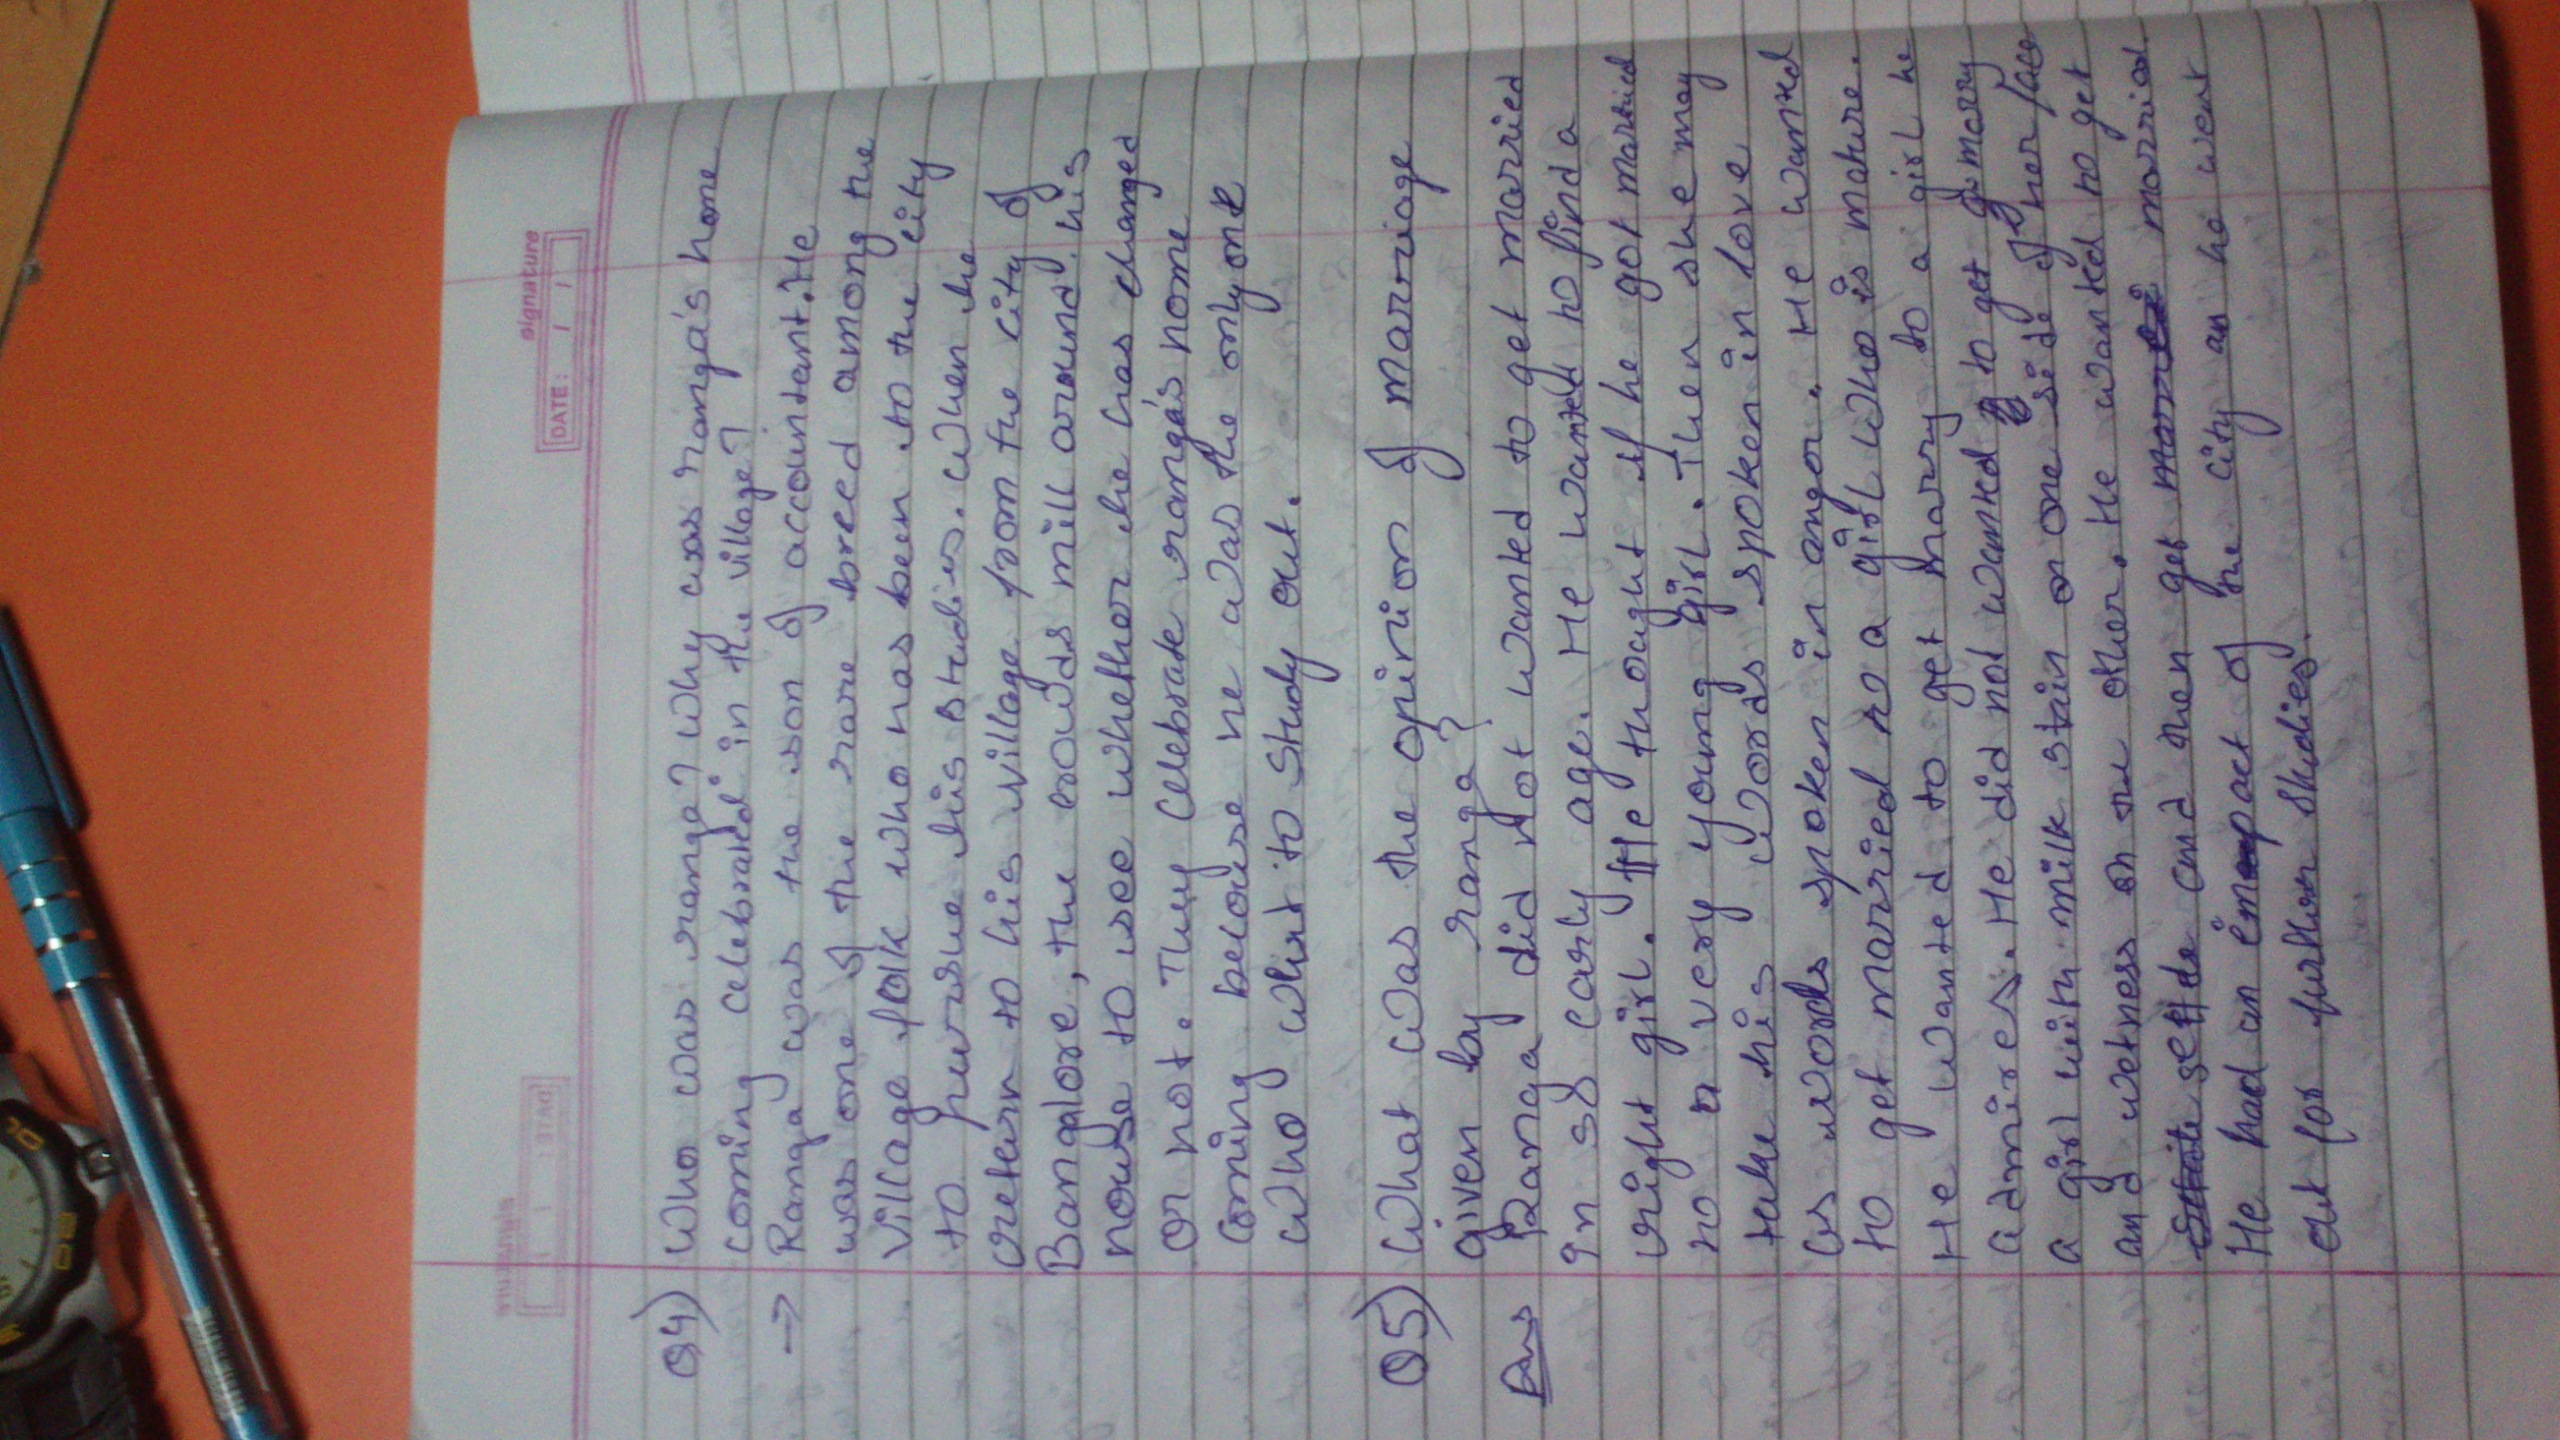 signature
DATE: / /
Q4) Who was ranga? Why was ranga's home
coming celebrated in the village?
→ Ranga was the son of accountant. He
was one of the rare breed among the
village folk who has been to the city
to purshe his studies. When he
return to his village from the city of
Bangalore, the crowds mill around his
house to see whether he has changed
or not. They celebrate ranga's home
coming because he was the only one
who whent to study out.
Q5) What was the opinion of marriage
given by ranga?
Ans Ranga did not wanted to get married
in so early age. He wanted to find a
right girl. He thought if he got married
to a very young girl. Then she may
take his words spoken in love
as words spoken in anger. He wanted
to get married to a girl who is mature.
He wanted to get marry to a girl he
admires. He did not wanted to get marry
a girl with milk stain on one side of her face
and wetness on the other. He wanted to get
settle and then get married.
He had an impact of the city as he went
out for further studies.